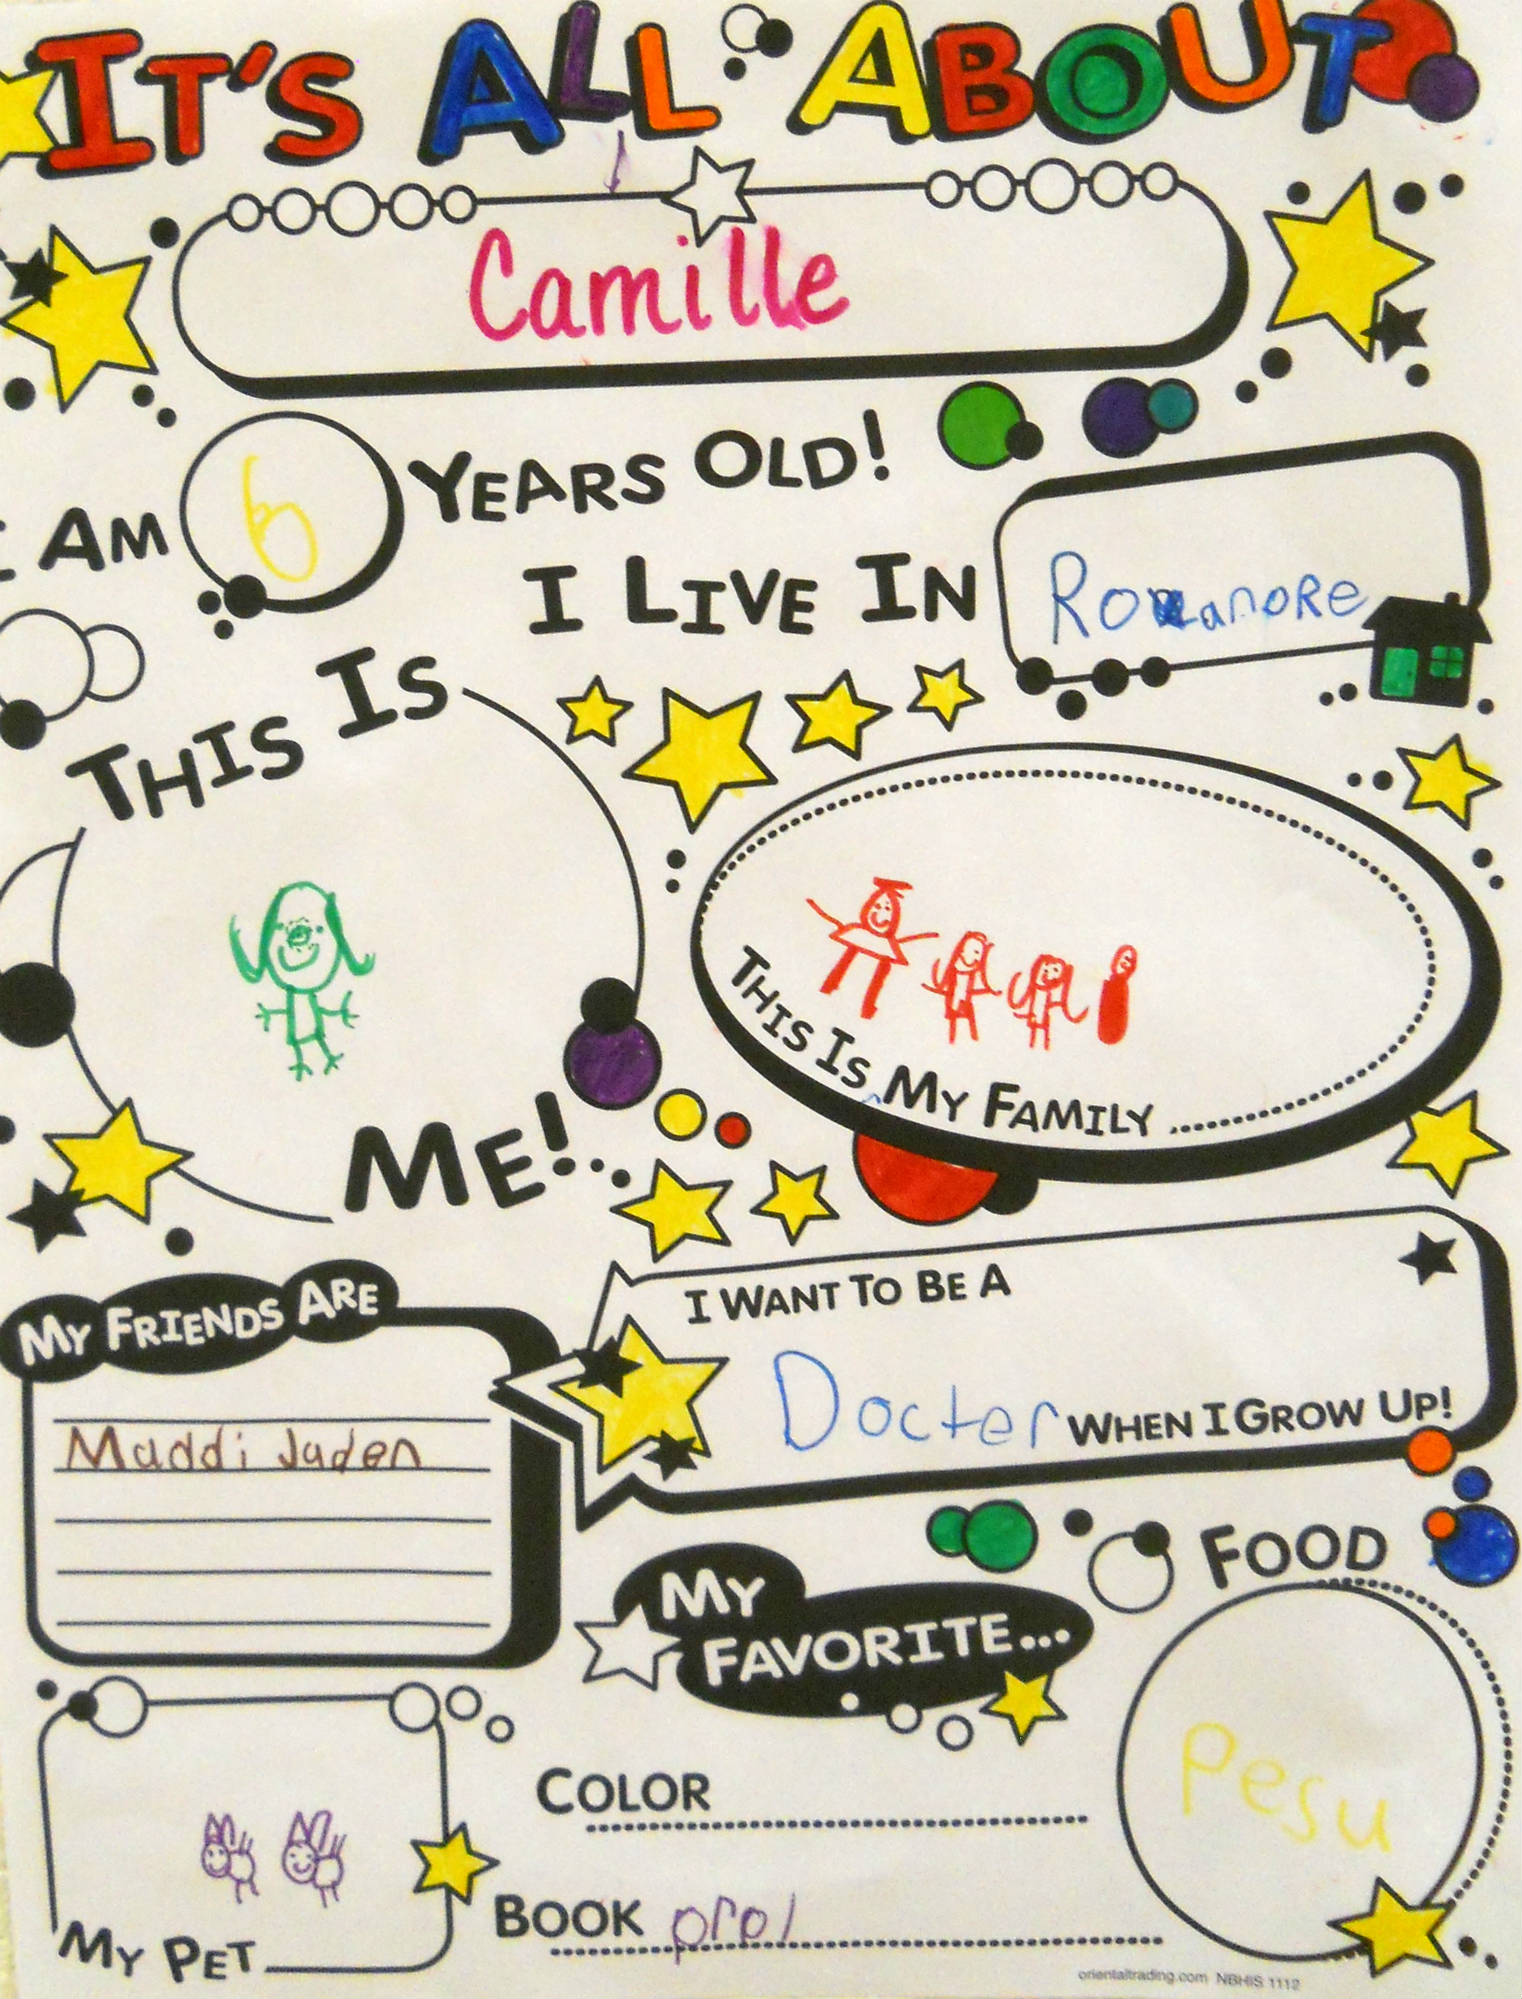 IT'S ALL ABOUT
Camille
I AM 6 YEARS OLD!
I LIVE IN
THIS IS
ME!
THIS IS MY FAMILY
MY FRIENDS ARE
Maddi Jaden
I WANT TO BE A
Docter WHEN I GROW UP!
MY FAVORITE...
FOOD
Pesu
COLOR
BOOK prpl
MY PET
orientaltrading.com NBHIS 1112